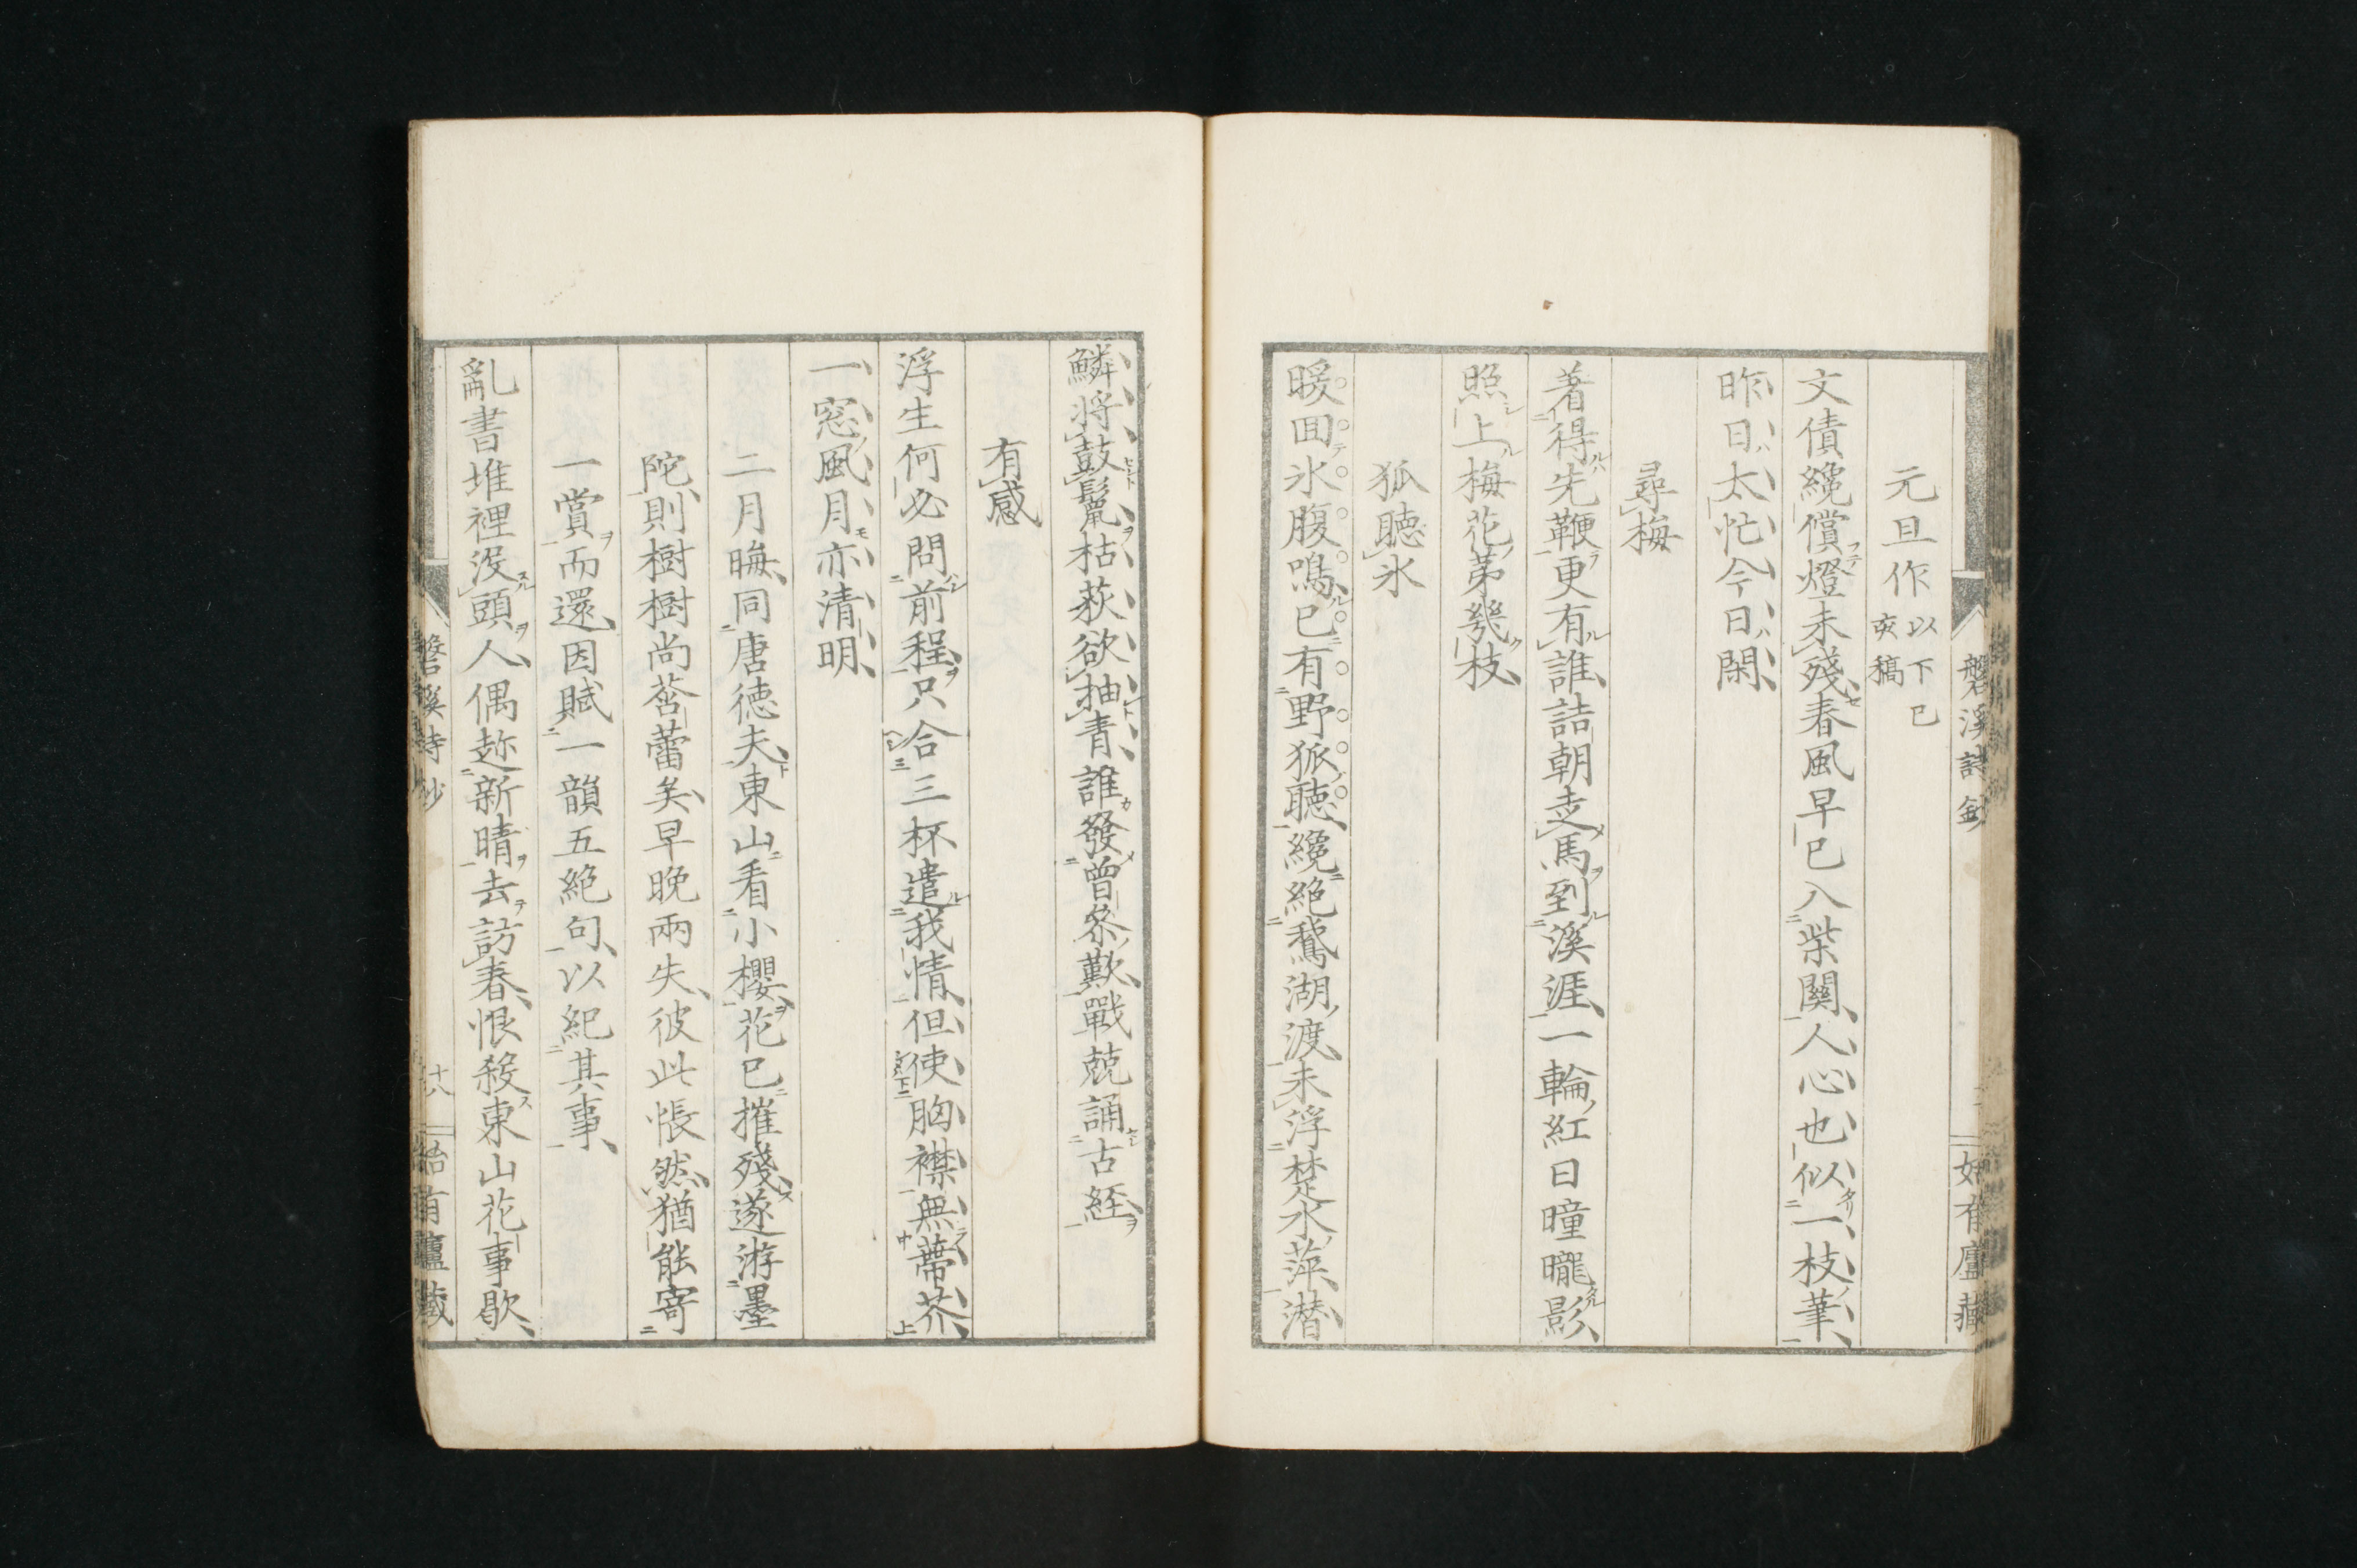 磐溪詩鈔
如有廬藏
元旦作以下己亥稿
文債纔償燈未殘春風早已入柴關人心也似一枝筆
昨日太忙今日閑
尋梅
著得先鞭更有誰詰朝走馬到溪涯一輪紅日曈曨影
照上梅花第幾枝
狐聽氷
暖回氷腹鳴已有野狐聽纔絕鵞湖渡未浮楚水萍潛
鱗將鼓鬣枯荻欲抽青誰發曾參歎戰兢誦古經
有感
浮生何必問前程只合三杯遣我情但使胸襟無蔕芥
一窓風月亦清明
二月晦同唐德夫東山看小櫻花已摧殘遂游墨
陀則樹樹尚菩蕾矣早晚兩失彼此悵然猶能寄
一賞而還因賦一韻五絕句以紀其事
亂書堆裡沒頭人偶趂新晴去訪春恨殺東山花事歇
十八